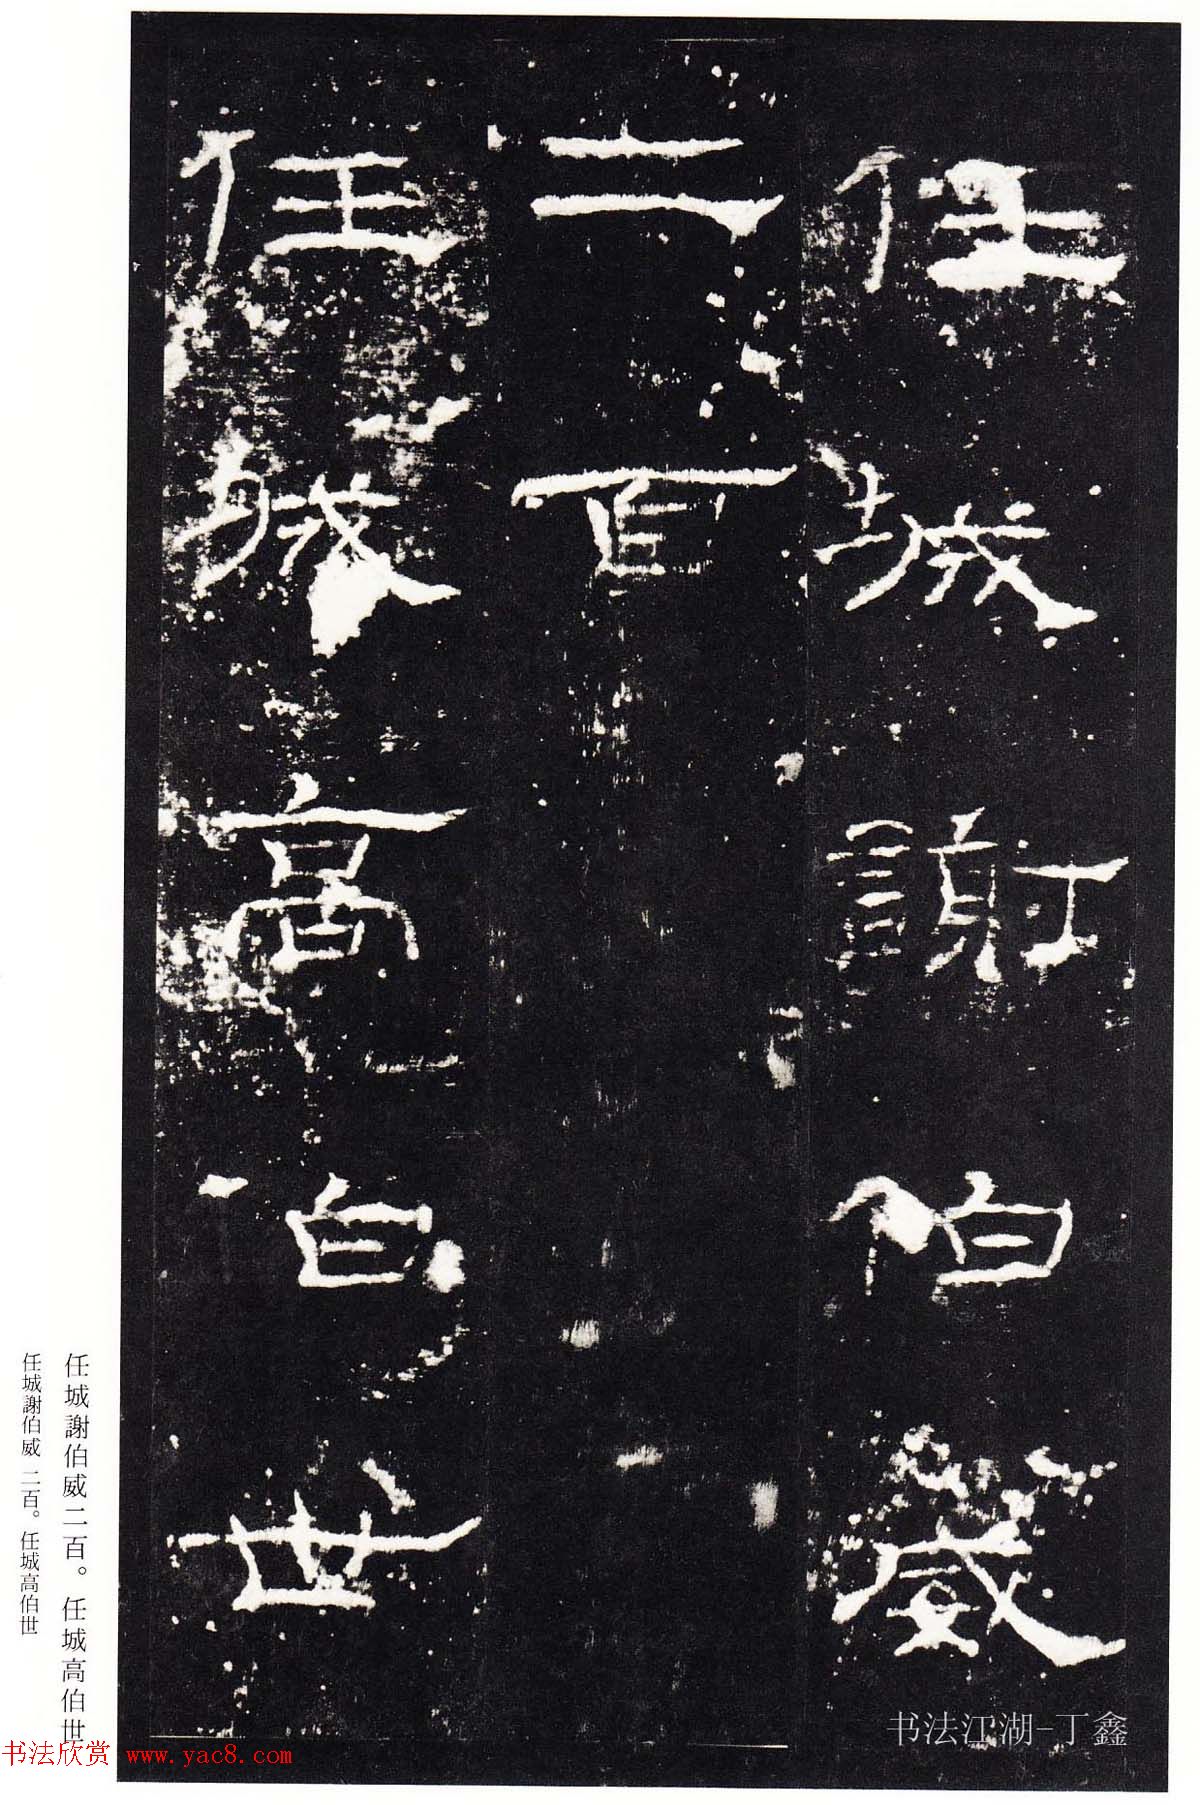 任城謝伯威
二百
任城高伯世
任城謝伯威二百。任城高伯世
任城謝伯威 二百。任城高伯世
书法江湖-丁鑫
书法欣赏 www.yac8.com